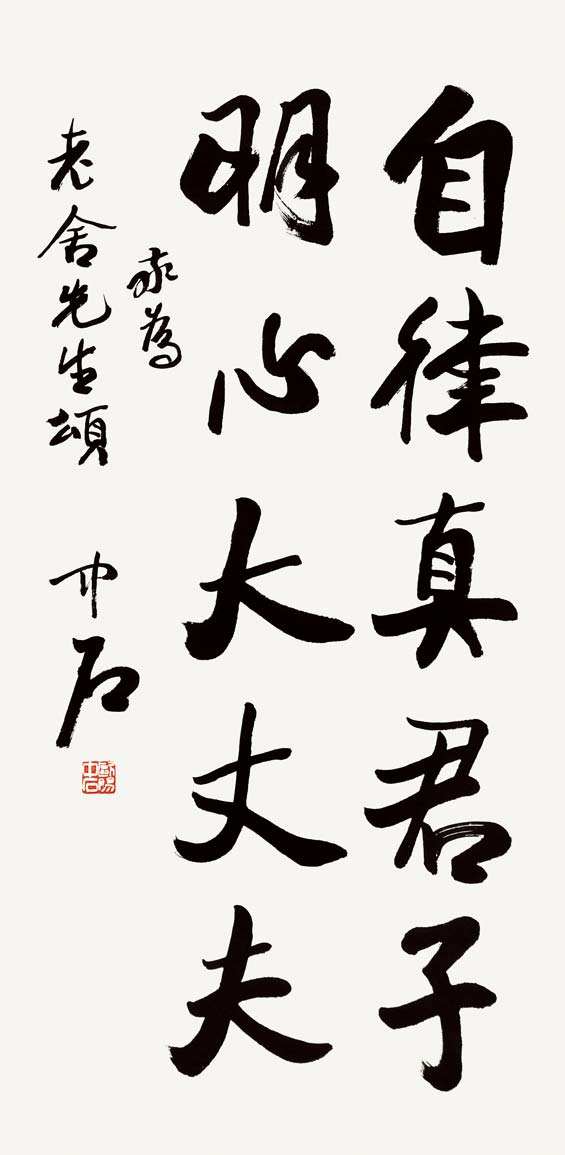 自律真君子
明心大丈夫
敬為
老舍先生頌
中石
歐陽中石